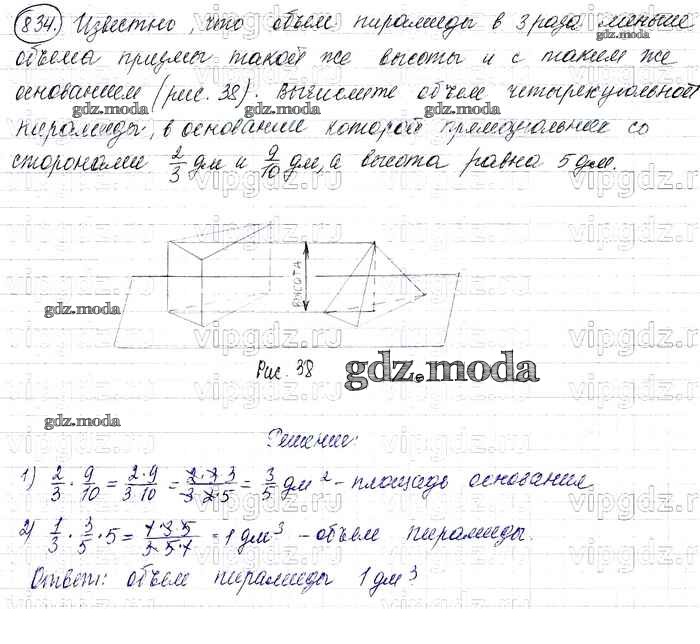 834. Известно, что объем пирамиды в 3 раза меньше
объема призмы такой же высоты и с таким же
основанием (рис. 38). Вычислите объем четырехугольной
gdz.moda gdz.moda gdz.moda
пирамиды, в основании которой прямоугольник со
сторонами 2/3 дм и 9/10 дм, а высота равна 5 дм.
vipgdz.moda vipgdz.moda
ВЫСОТА
gdz.moda
Рис. 38
gdz.moda
gdz.moda
Решение:
1) 2/3 · 9/10 = 2·9/3·10 = 2·9·3/3·2·5 = 3/5 дм² - площадь основания
2) 1/3 · 3/5 · 5 = 1·3·5/3·5·1 = 1 дм³ - объем пирамиды.
Ответ: объем пирамиды 1 дм³